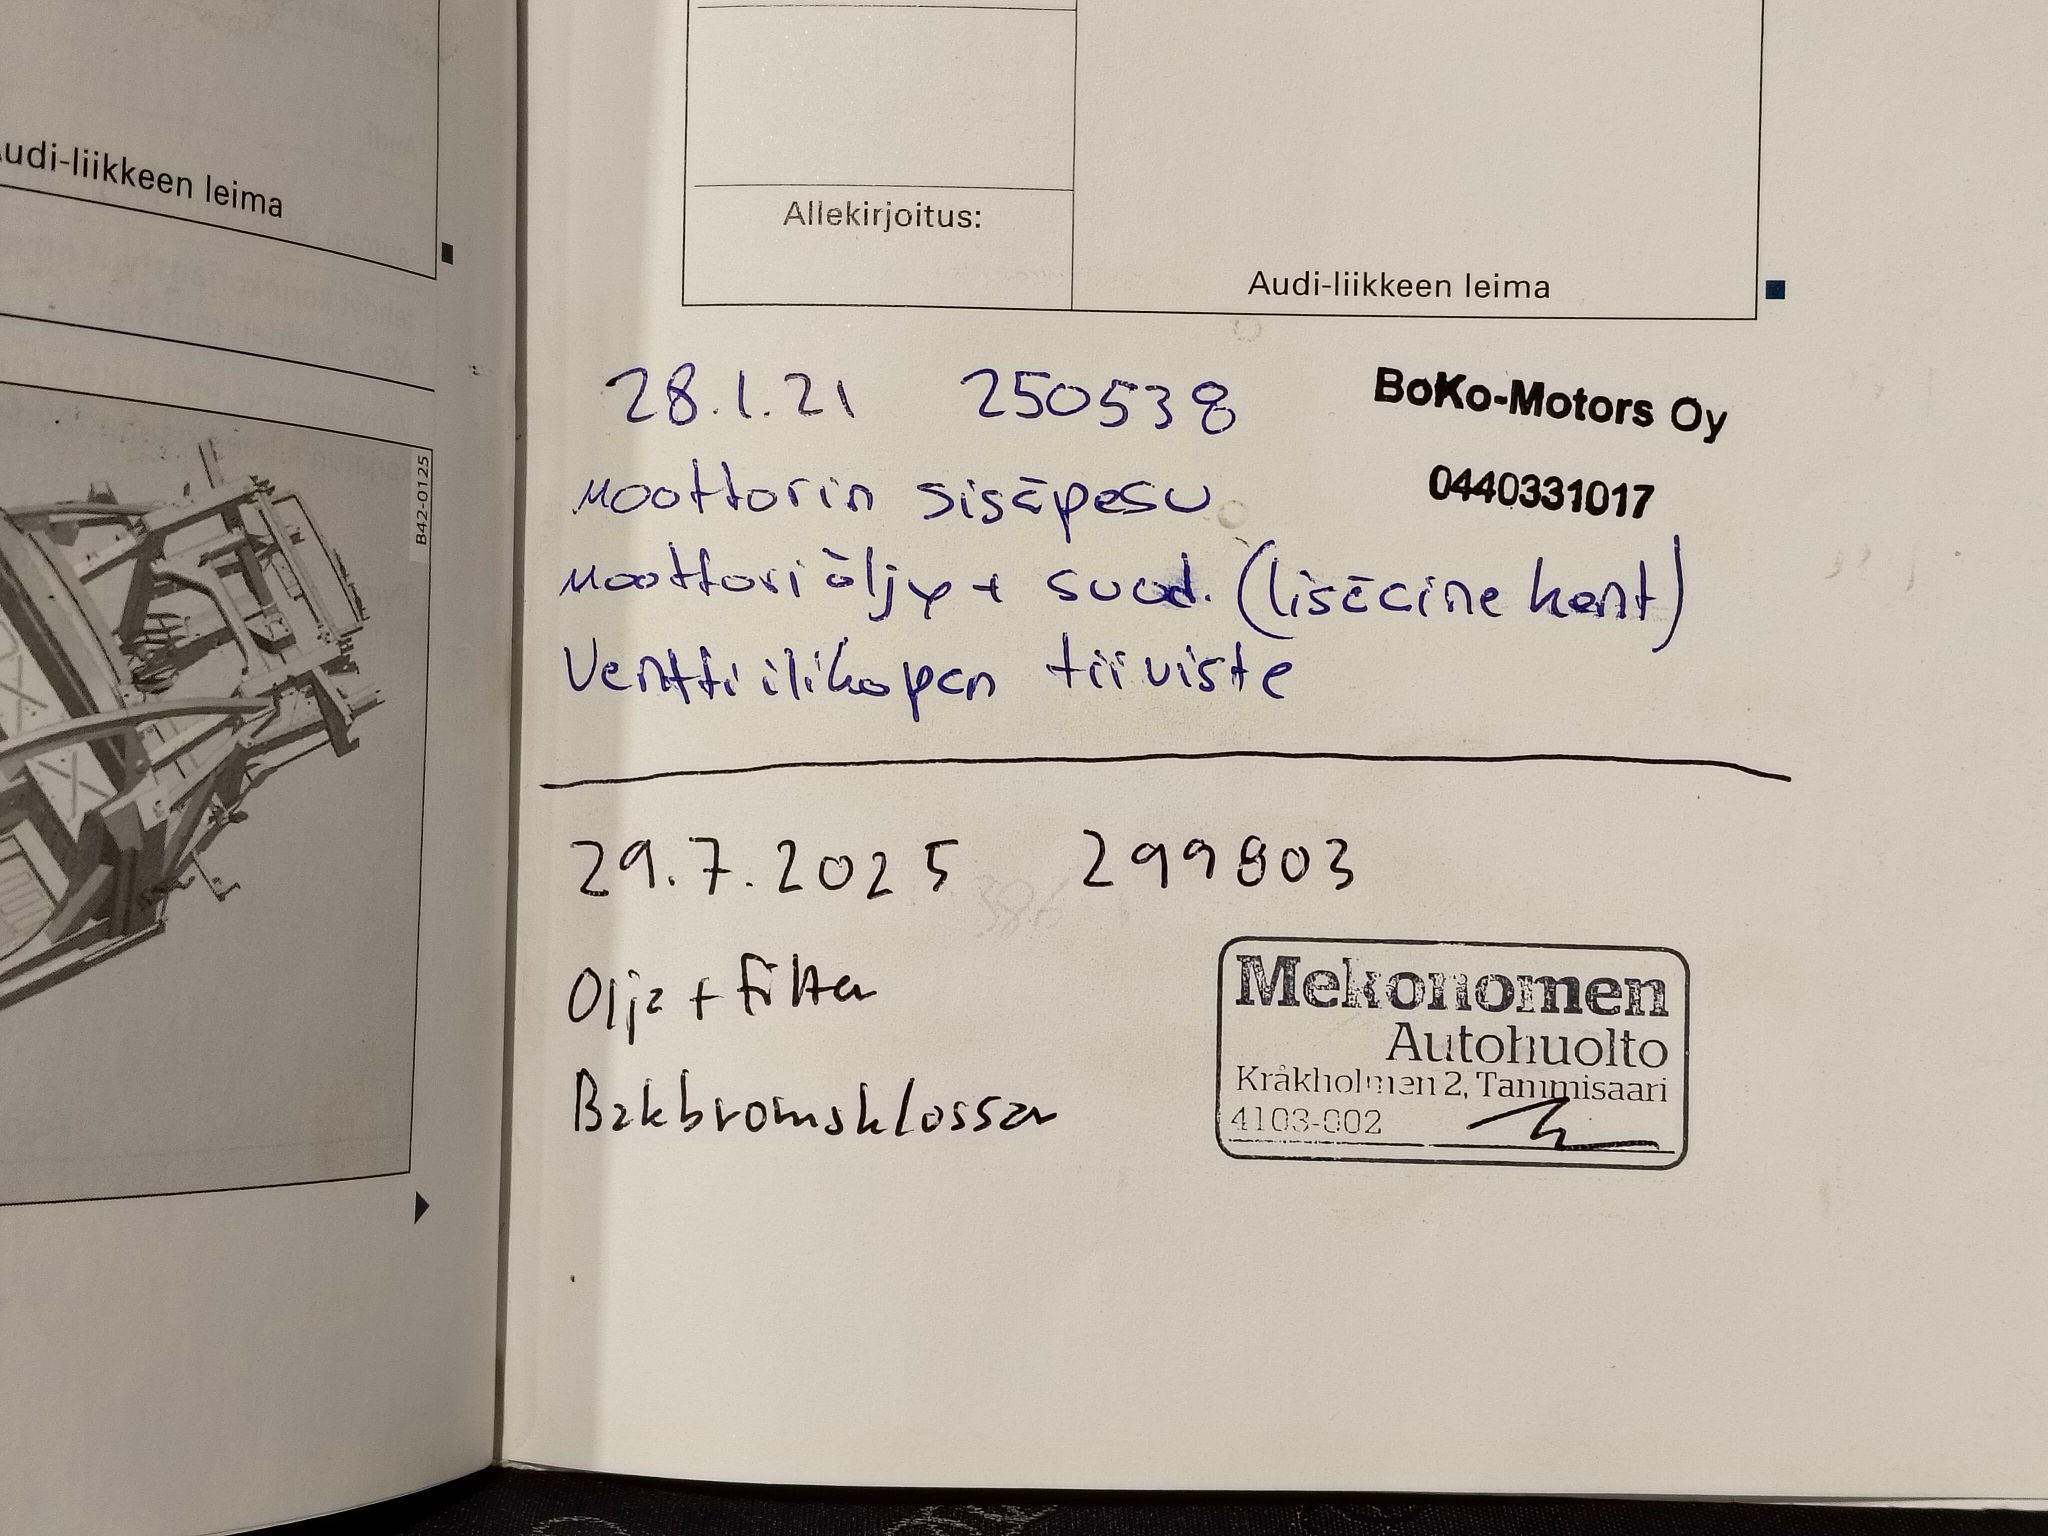 Audi-liikkeen leima
B42-0125
Allekirjoitus:
Audi-liikkeen leima
28.1.21 250538
BoKo-Motors Oy
0440331017
moottorin sisäpesu
moottoriöljy + suod. (lisäaine kant)
Venttiilikopan tiiviste
29.7.2025 299803
Olja + filter
Bakbromsklossar
Mekonomen
Autohuolto
Kråkholmen 2, Tammisaari
4103-002